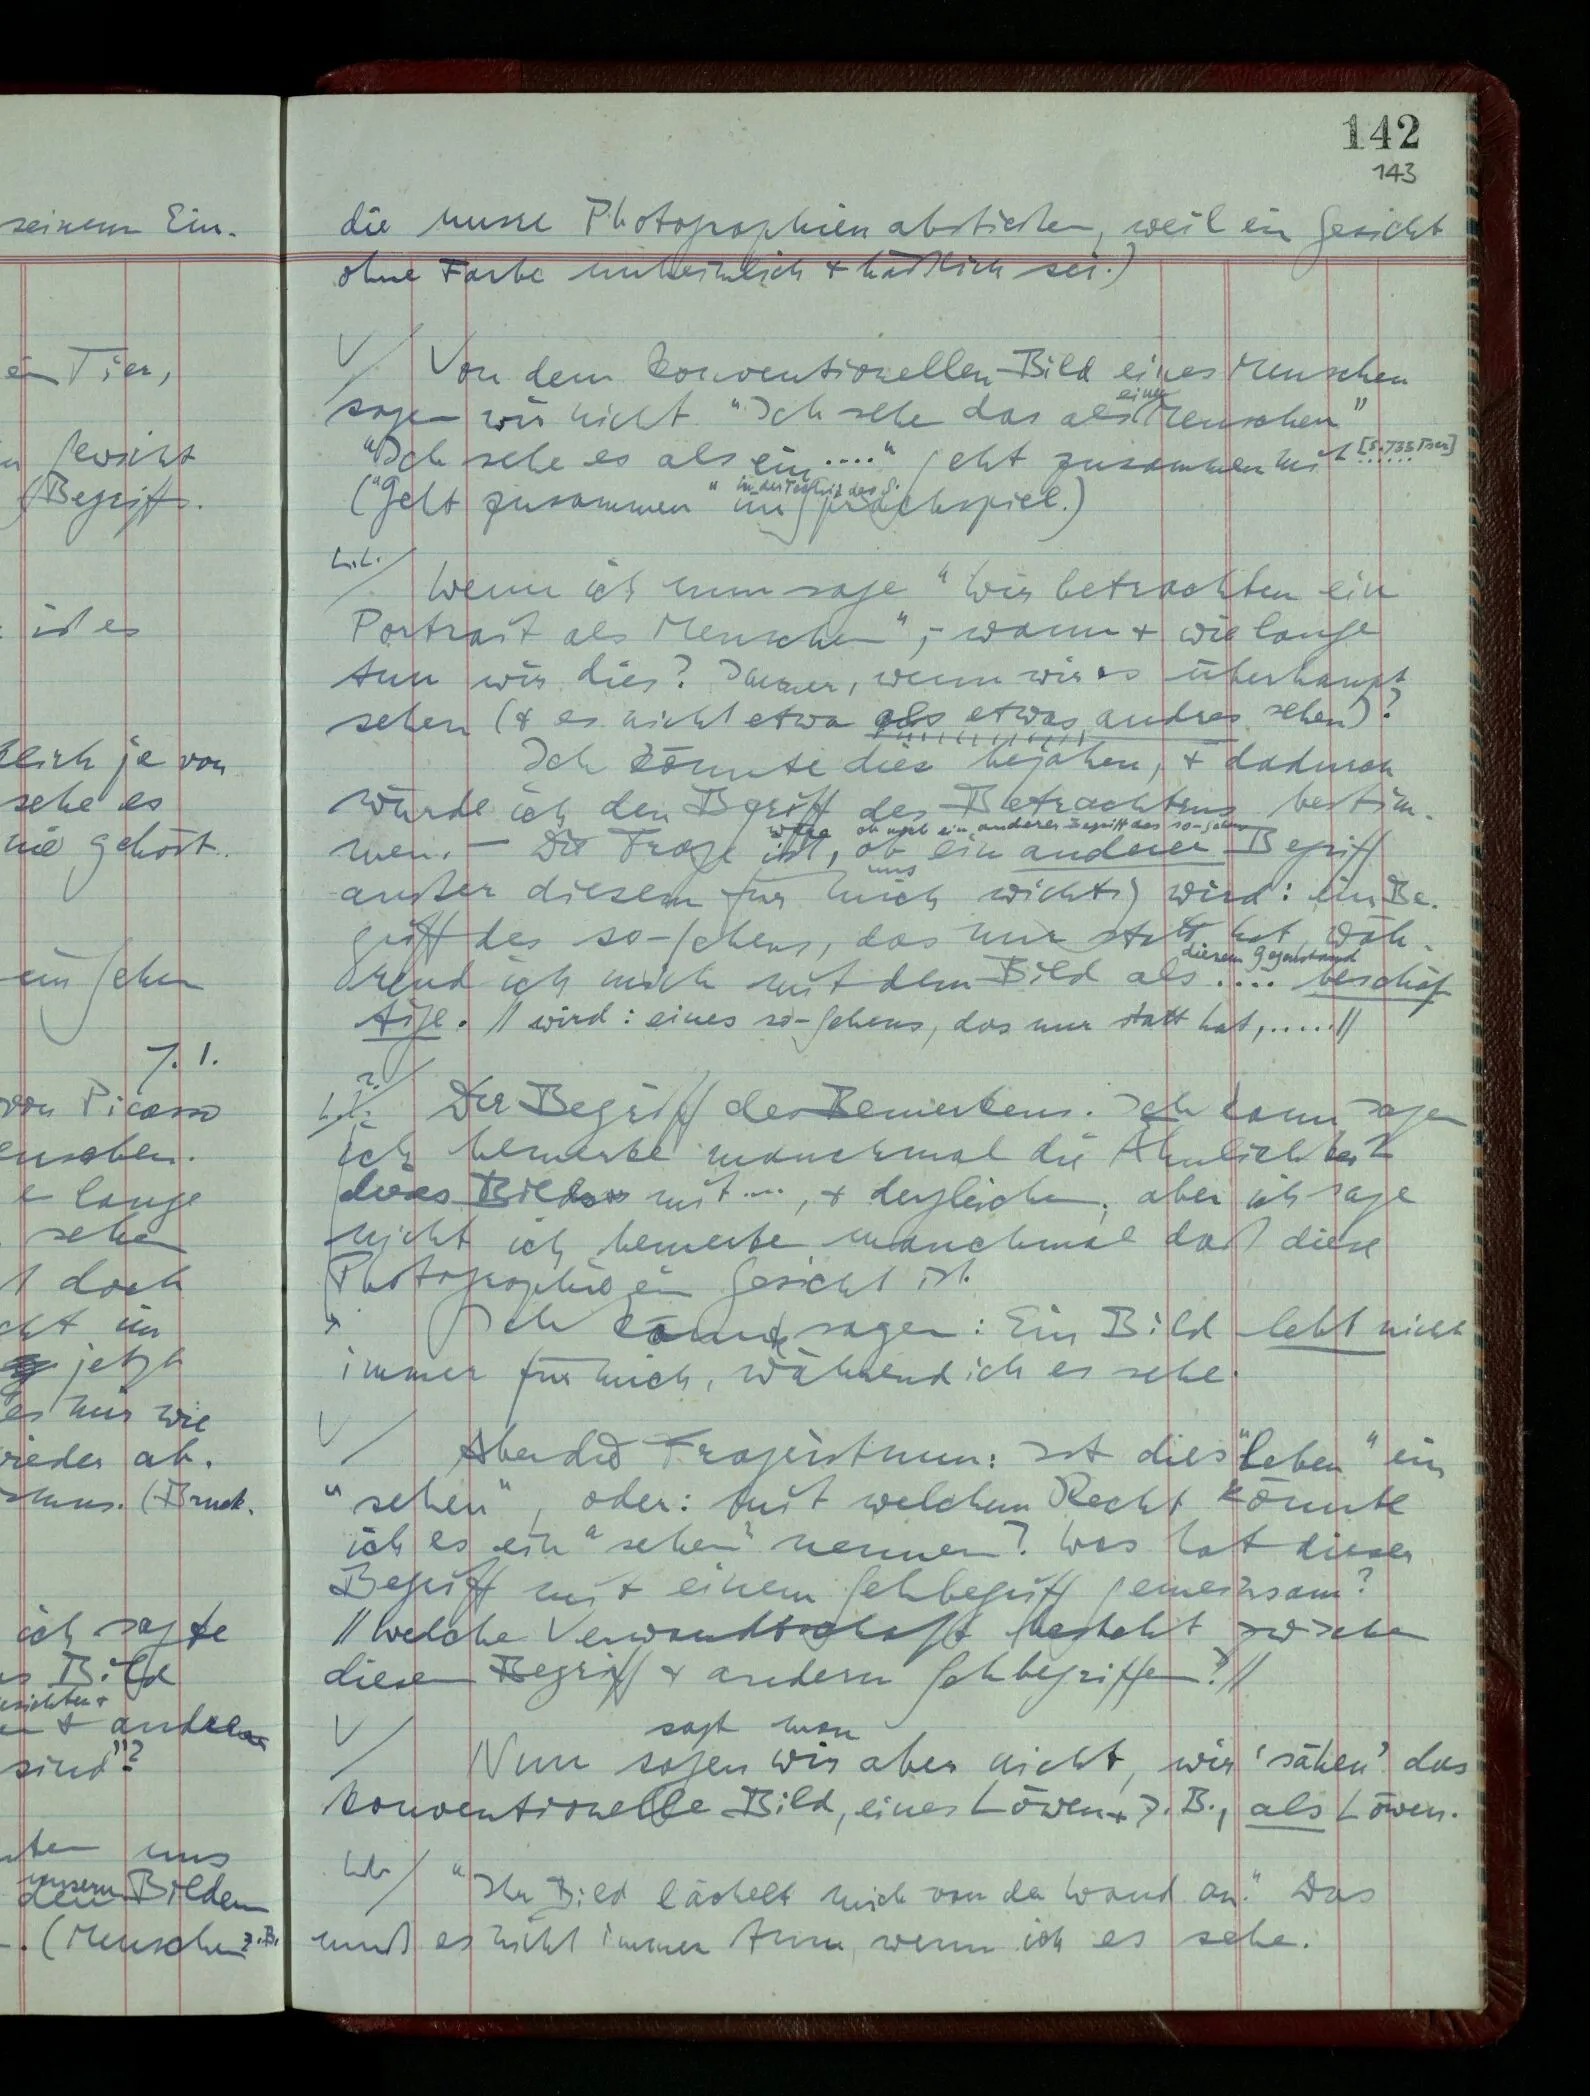 142
143
die unsre Photographien abstießen, weil ein Gesicht
ohne Farbe unheimlich & häßlich sei.)
V/ Von dem konventionellen Bild eines Menschen
einen
sagen wir nicht "Ich sehe das als Menschen"
"Ich sehe es als ein ...." geht zusammen mit
in der Technik des S.
("Geht zusammen" im Sprachspiel.)
Wenn ich nun sage "Wir betrachten ein
Portrait als Menschen", – wann & wie lange
tun wir dies? Immer, wenn wir es überhaupt
sehen (& es nicht etwa als etwas andres sehen)?
Ich könnte dies bejahen, & dadurch
würde ich den Begriff des Betrachtens bestim-
wäre ob noch ein anderer Begriff des so-Sehens
men. – Die Frage ist, ob ein anderer Begriff
uns
außer diesem für mich wichtig wird: ein Be-
griff des so-Sehens, das nur statt hat, wäh-
diesem Gegenstand
rend ich mich mit dem Bild als .... beschäf
tige. // wird: eines so-Sehens, das nur statt hat, ..... //
Der Begriff des Bemerkens. Ich kann sagen
ich bemerke manchmal die Ähnlichkeit
dieses Bildes mit ...., & dergleichen, aber ich sage
nicht ich bemerke manchmal daß diese
Photographie ein Gesicht ist.
Ich könnte sagen: Ein Bild lebt nicht
immer für mich, während ich es sehe.
V/ Aber die Frage ist nun: Ist dies "leben" ein
"sehen", oder: mit welchem Recht könnte
ich es ein "sehen" nennen? Was hat dieser
Begriff mit einem Sehbegriff gemeinsam?
// Welche Verwandtschaft besteht zwischen
diesem Begriff & andern Sehbegriffen? //
sagt man
V/ Nun sagen wir aber nicht, wir 'sähen' das
konventionelle Bild, eines Löwen z.B., als Löwen.
"Ihr Bild lächelt mich von der Wand an." Das
muß es nicht immer tun, wenn ich es sehe.
seinem Ein-
ein Tier,
Gesicht
Begriffs.
ist es
je von
sehe es
nie gehört.
ein Sehen
7.1.
von Picasso
Menschen.
lange
sehen
doch
jetzt
es mir wie
wieder ab.
(Bruck.
ich sagte
Bild
& anderen
sind"?
uns
unsern
den Bildern
(Menschen z.B.